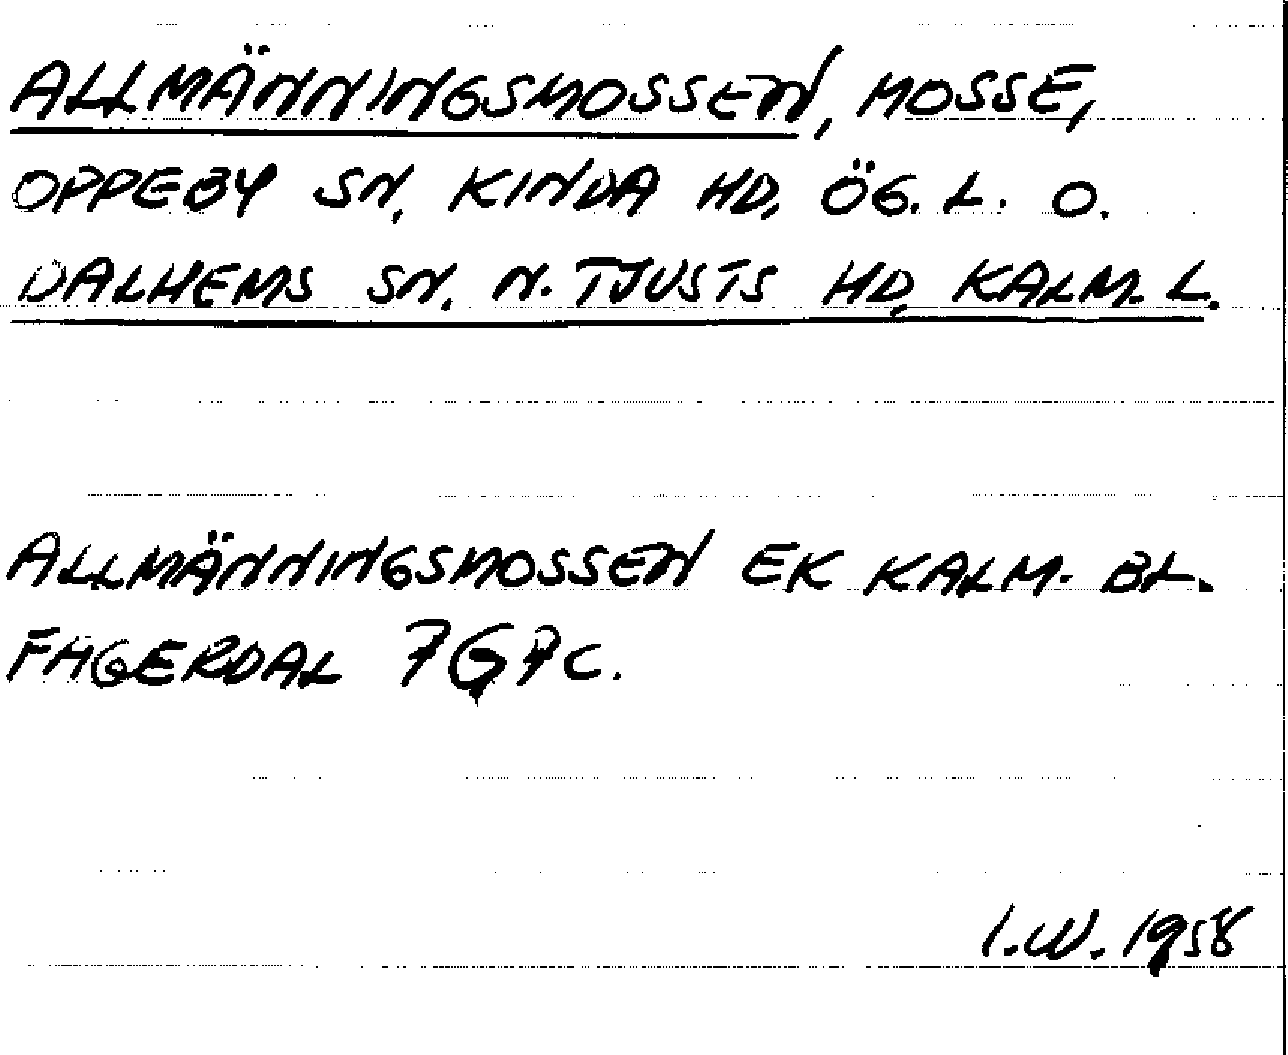 ALLMÄNNINGSMOSSEN, MOSSE,
OPPEBY SN, KINDA HD, ÖG. L. O.
DALHEMS SN. N. TJUSTS HD, KALM. L.
ALLMÄNNINGSMOSSEN EK KALM. BL.
FAGERDAL 7G7C.
I.W. 1958